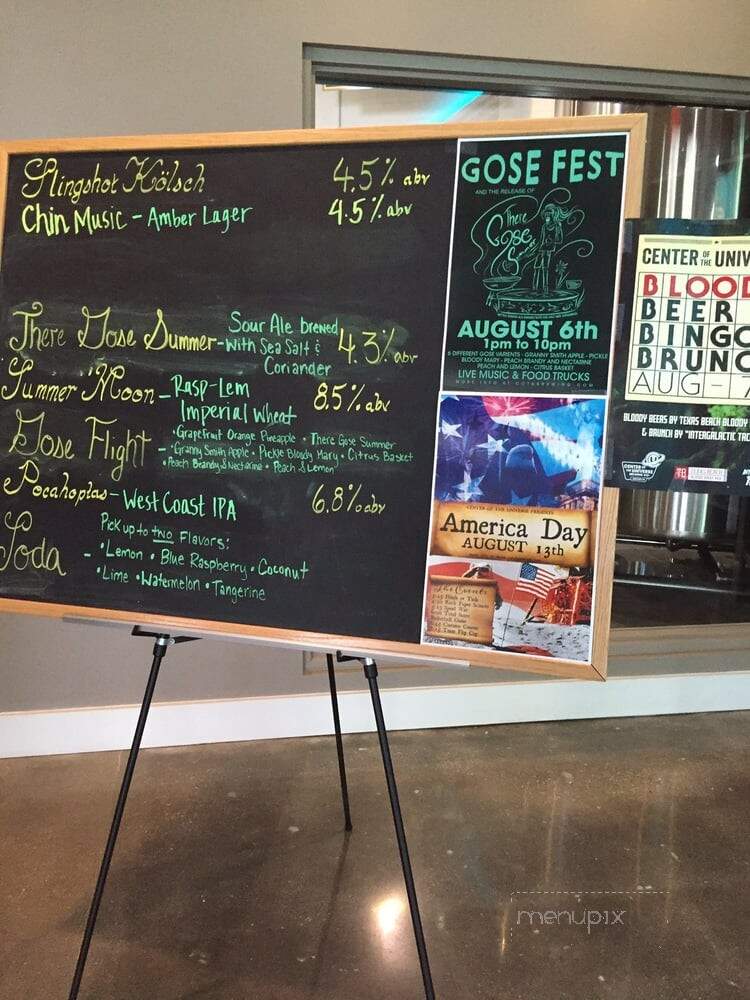 Slingshot Kölsch 4.5% abv
Chin Music - Amber Lager 4.5% abv
There Gose Summer - Sour Ale brewed with Sea Salt & Coriander 4.3% abv
Summer Moon - Rasp-Lem Imperial Wheat 8.5% abv
Gose Flight - • Grapefruit Orange Pineapple • There Gose Summer
• Granny Smith Apple • Pickle Bloody Mary • Citrus Basket
• Peach Brandy & Nectarine • Peach & Lemon
Pocahoptas - West Coast IPA 6.8% abv
Soda - Pick up to two Flavors:
• Lemon • Blue Raspberry • Coconut
• Lime • Watermelon • Tangerine
GOSE FEST
AND THE RELEASE OF
There
Gose
AUGUST 6th
1pm to 10pm
6 DIFFERENT GOSE VARIENTS - GRANNY SMITH APPLE - PICKLE
BLOODY MARY - PEACH BRANDY AND NECTARINE
PEACH AND LEMON - CITRUS BASKET
LIVE MUSIC & FOOD TRUCKS
CENTER OF THE UNIVERSE PRESENTS
America Day
AUGUST 13th
The Events
CENTER OF THE UNIV
BLOOD
BEER
BINGO
BRUNC
AUG-
BLOODY BEERS BY TEXAS BEACH BLOODY
& BRUNCH BY "INTERGALACTIC TAC
menupix